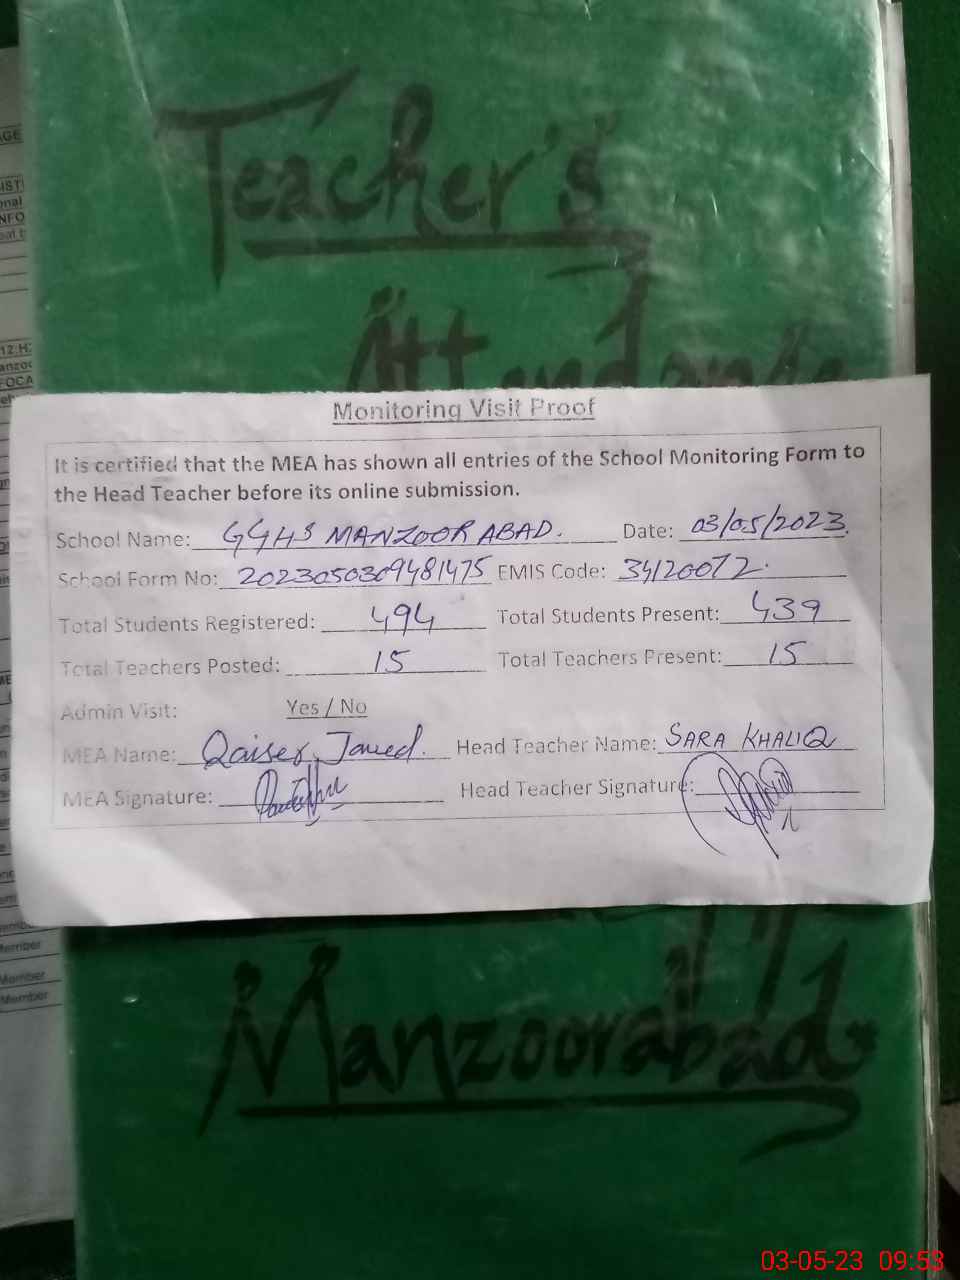 Teacher's
Attendance
Monitoring Visit Proof
It is certified that the MEA has shown all entries of the School Monitoring Form to
the Head Teacher before its online submission.
School Name: GGHS MANZOOR ABAD. Date: 03/05/2023.
School Form No: 2023050309481475 EMIS Code: 34120072.
Total Students Registered: 494 Total Students Present: 439
Total Teachers Posted: 15 Total Teachers Present: 15
Admin Visit: Yes / No
MEA Name: Qaiser Javed. Head Teacher Name: SARA KHALIQ
MEA Signature: Head Teacher Signature:
Manzoorabad
Member
Member
Member
03-05-23 09:53